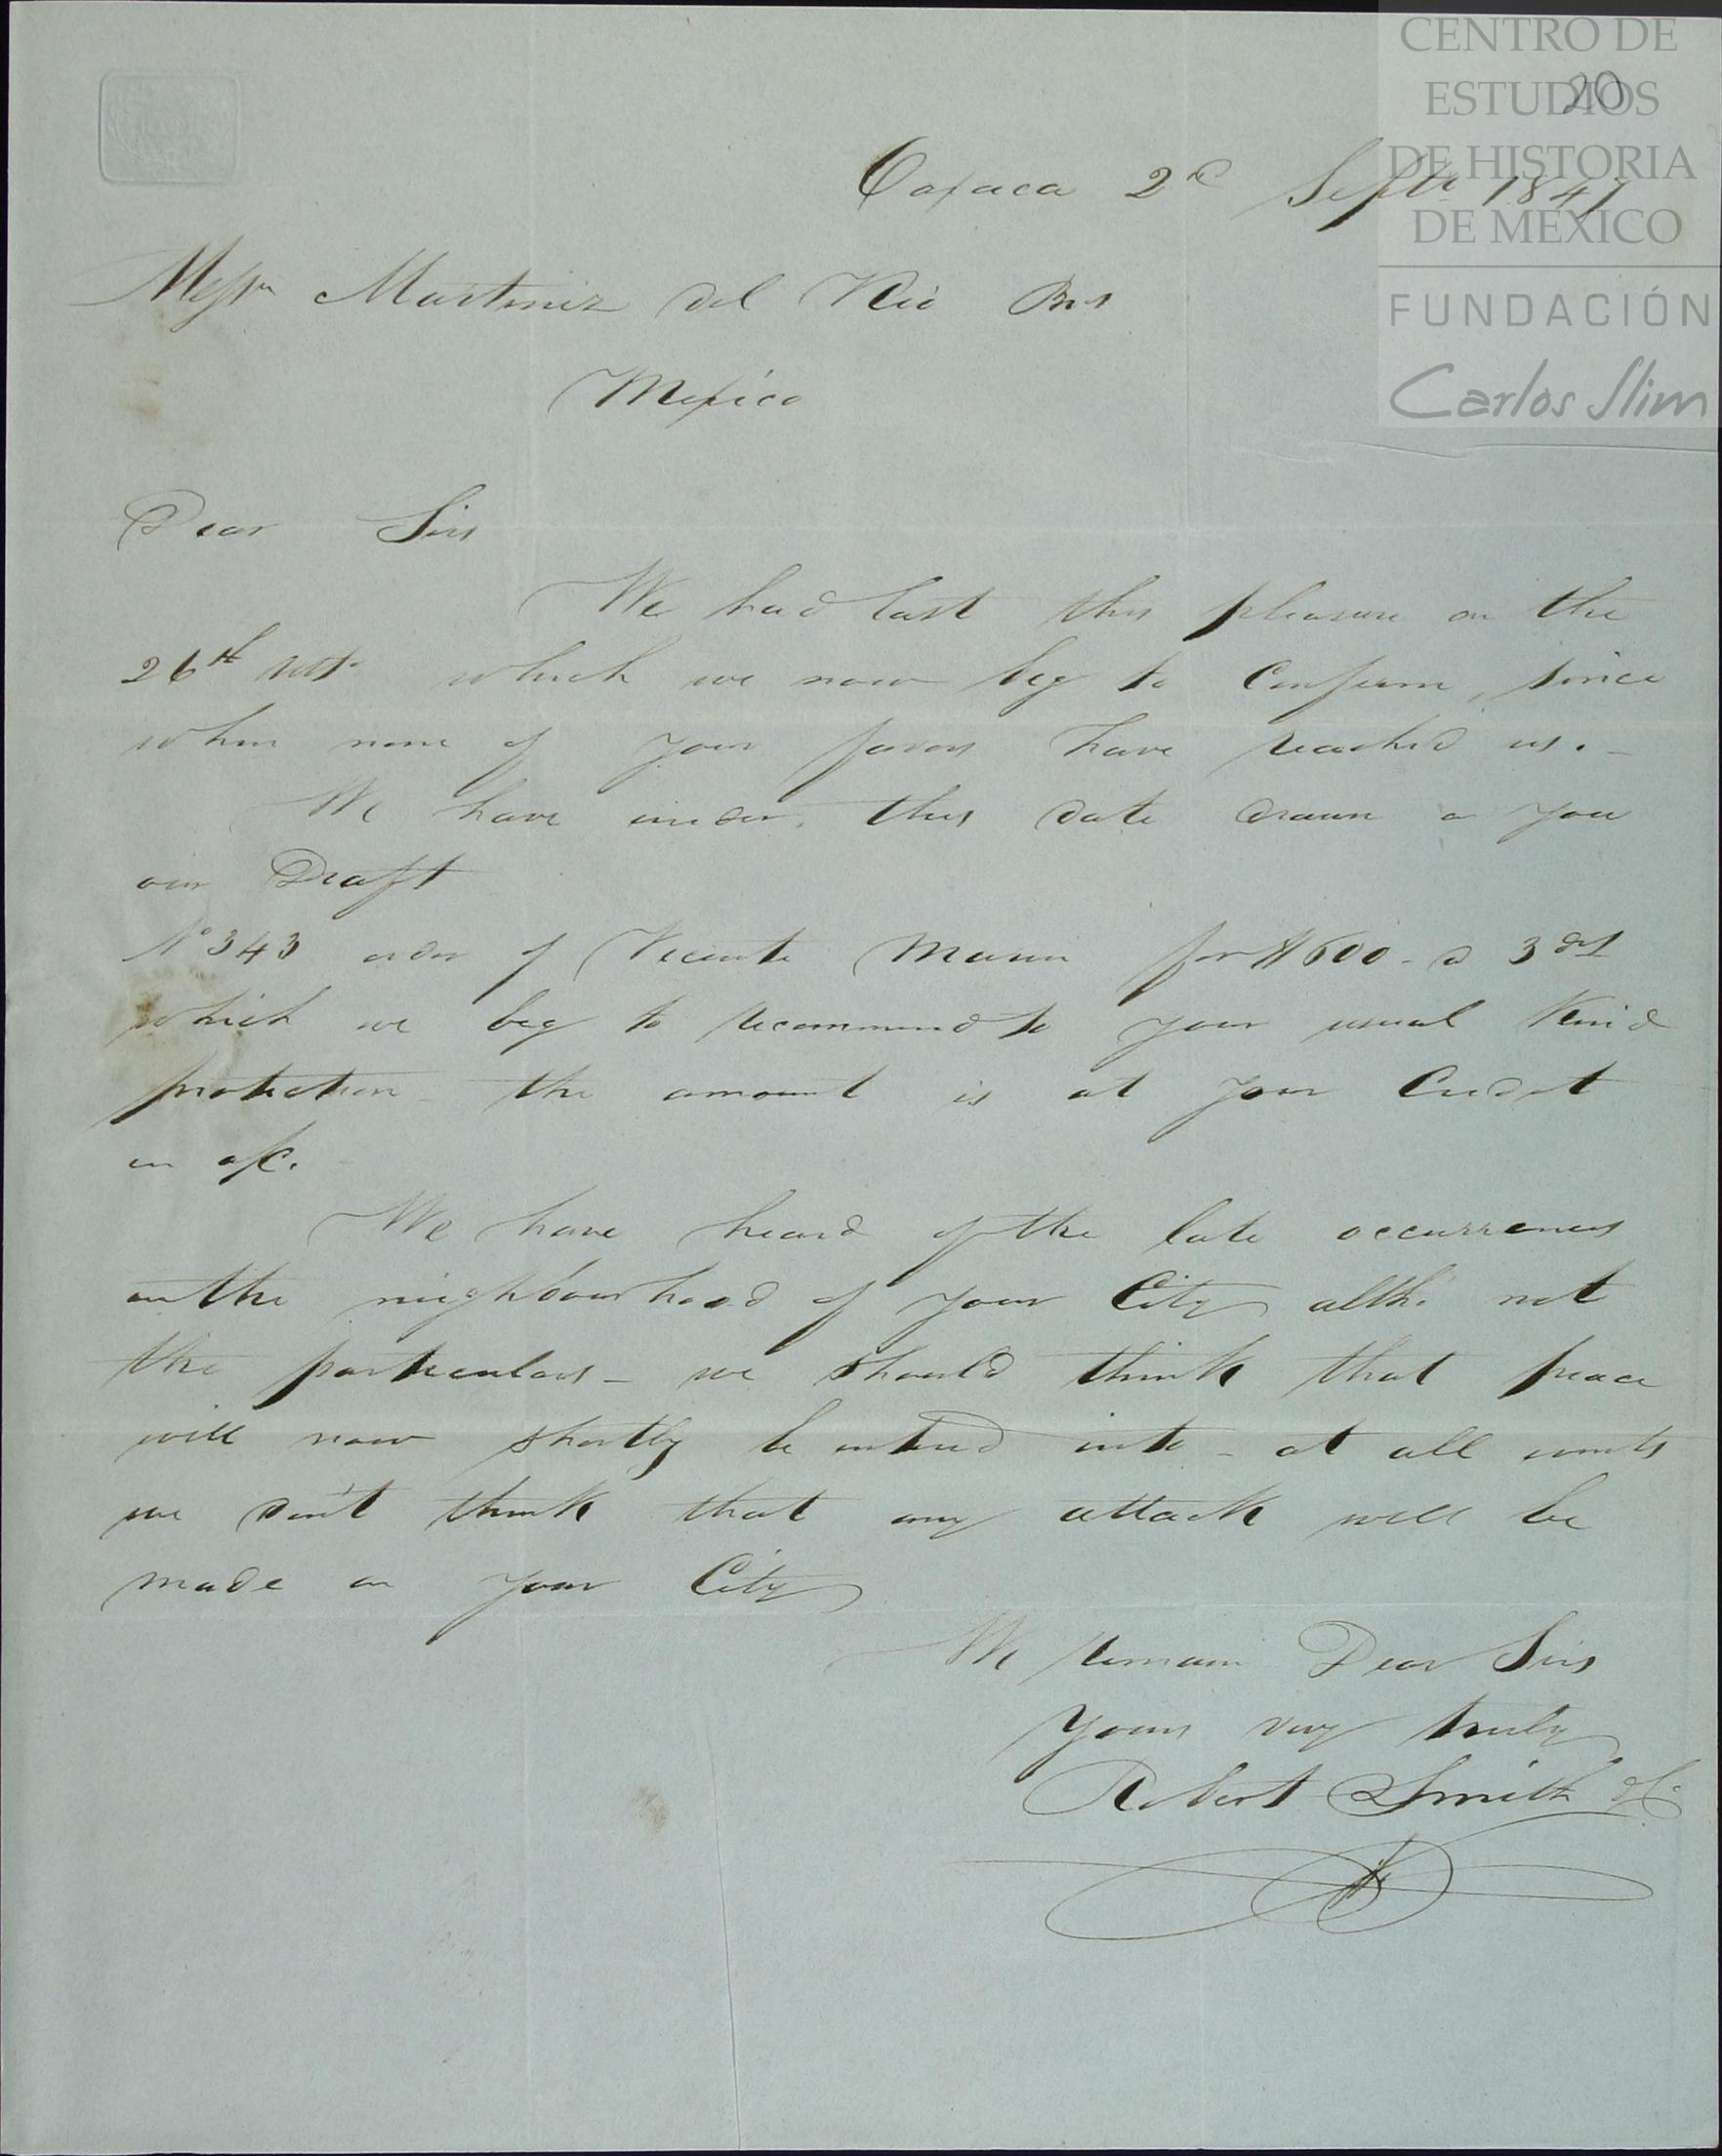 CENTRO DE
ESTUDIOS
DE HISTORIA
DE MÉXICO
FUNDACIÓN
Carlos Slim
20
Oaxaca 2d Septr 1847
Messrs Martinez del Rio Bros
Mexico
Dear Sirs
We had last this pleasure on the
26th ulto which we now beg to confirm, since
when none of your favors have reached us. -
We have under this date drawn on you
our Draft
No 343 order of Vicente Marin for $600 - @ 3 ds
which we beg to recommend to your usual kind
protection - the amount is at your Credit
in a/c.
We have heard of the late occurrences
in the neighbourhood of your City altho' not
the particulars - we should think that peace
will now shortly be entered into - at all events
we don't think that any attack will be
made on your City
We remain Dear Sirs
Yours very truly
Robert Smith & Co